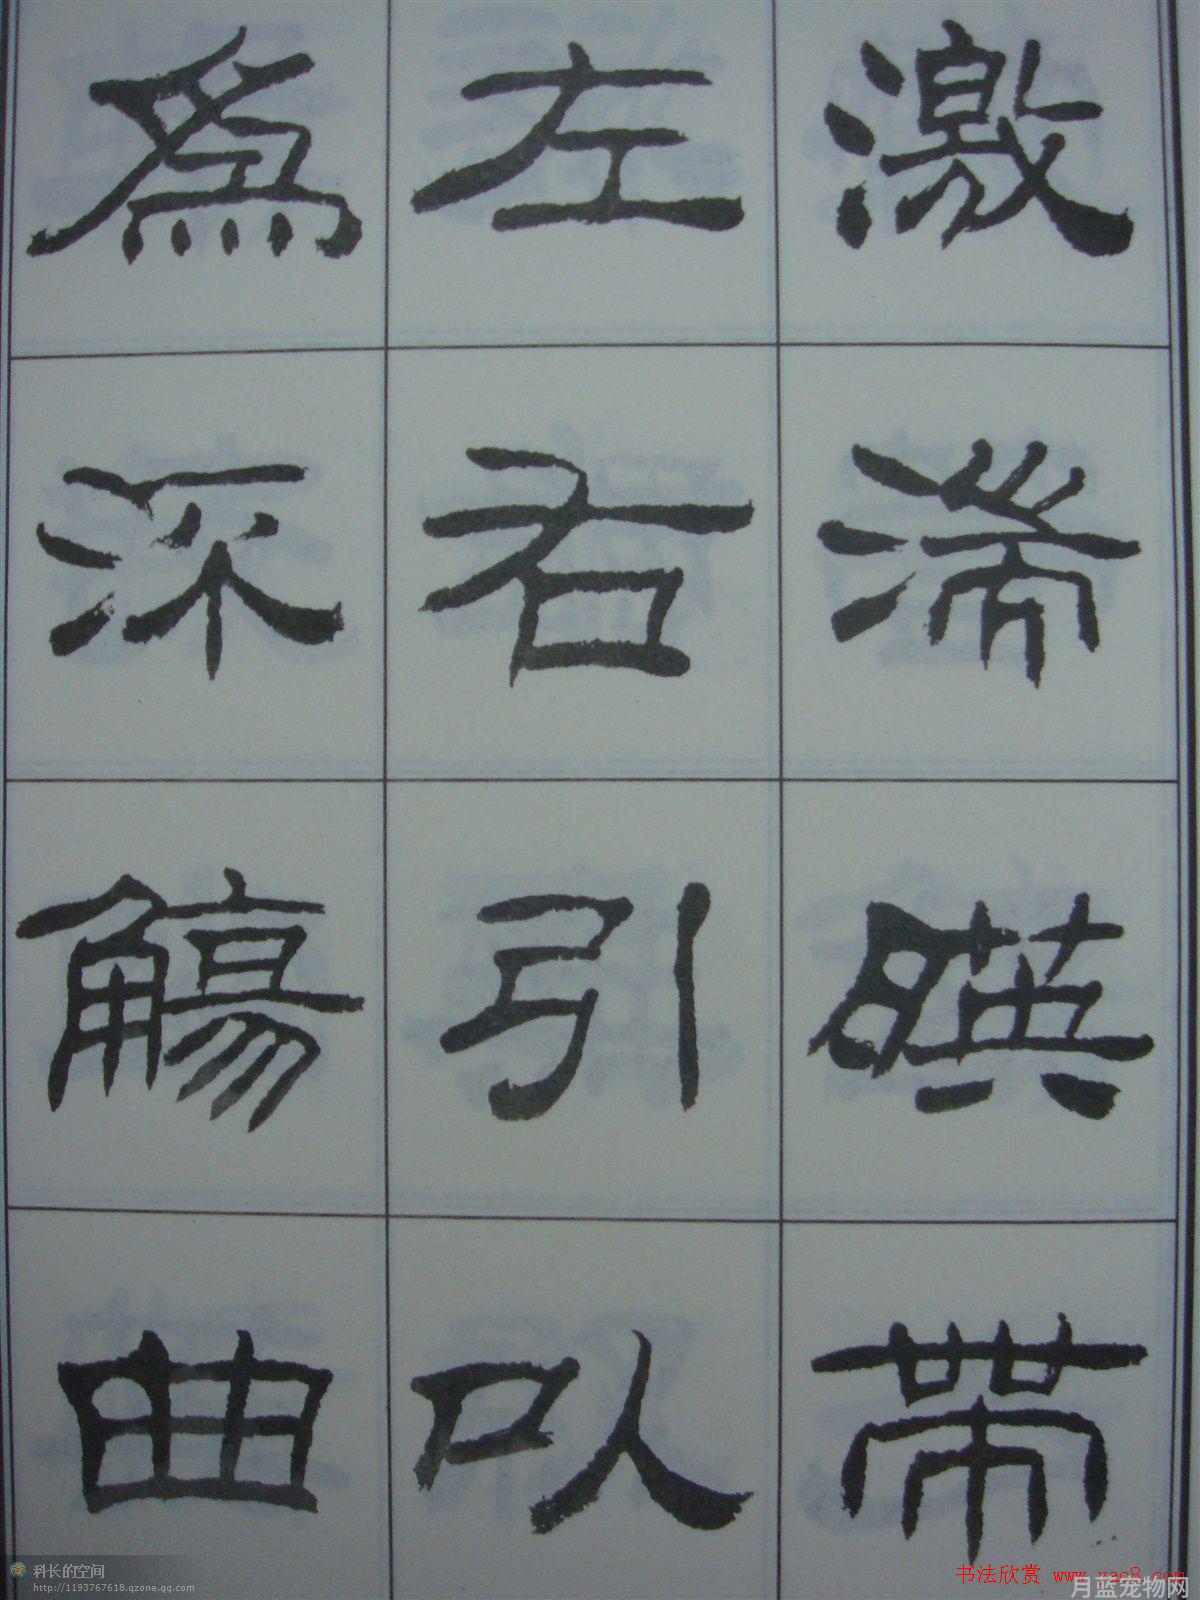 激湍暎带
左右引以
為流觴曲
科长的空间
http://1193767618.qzone.qq.com
书法欣赏 www.yac8.com
月蓝宠物网